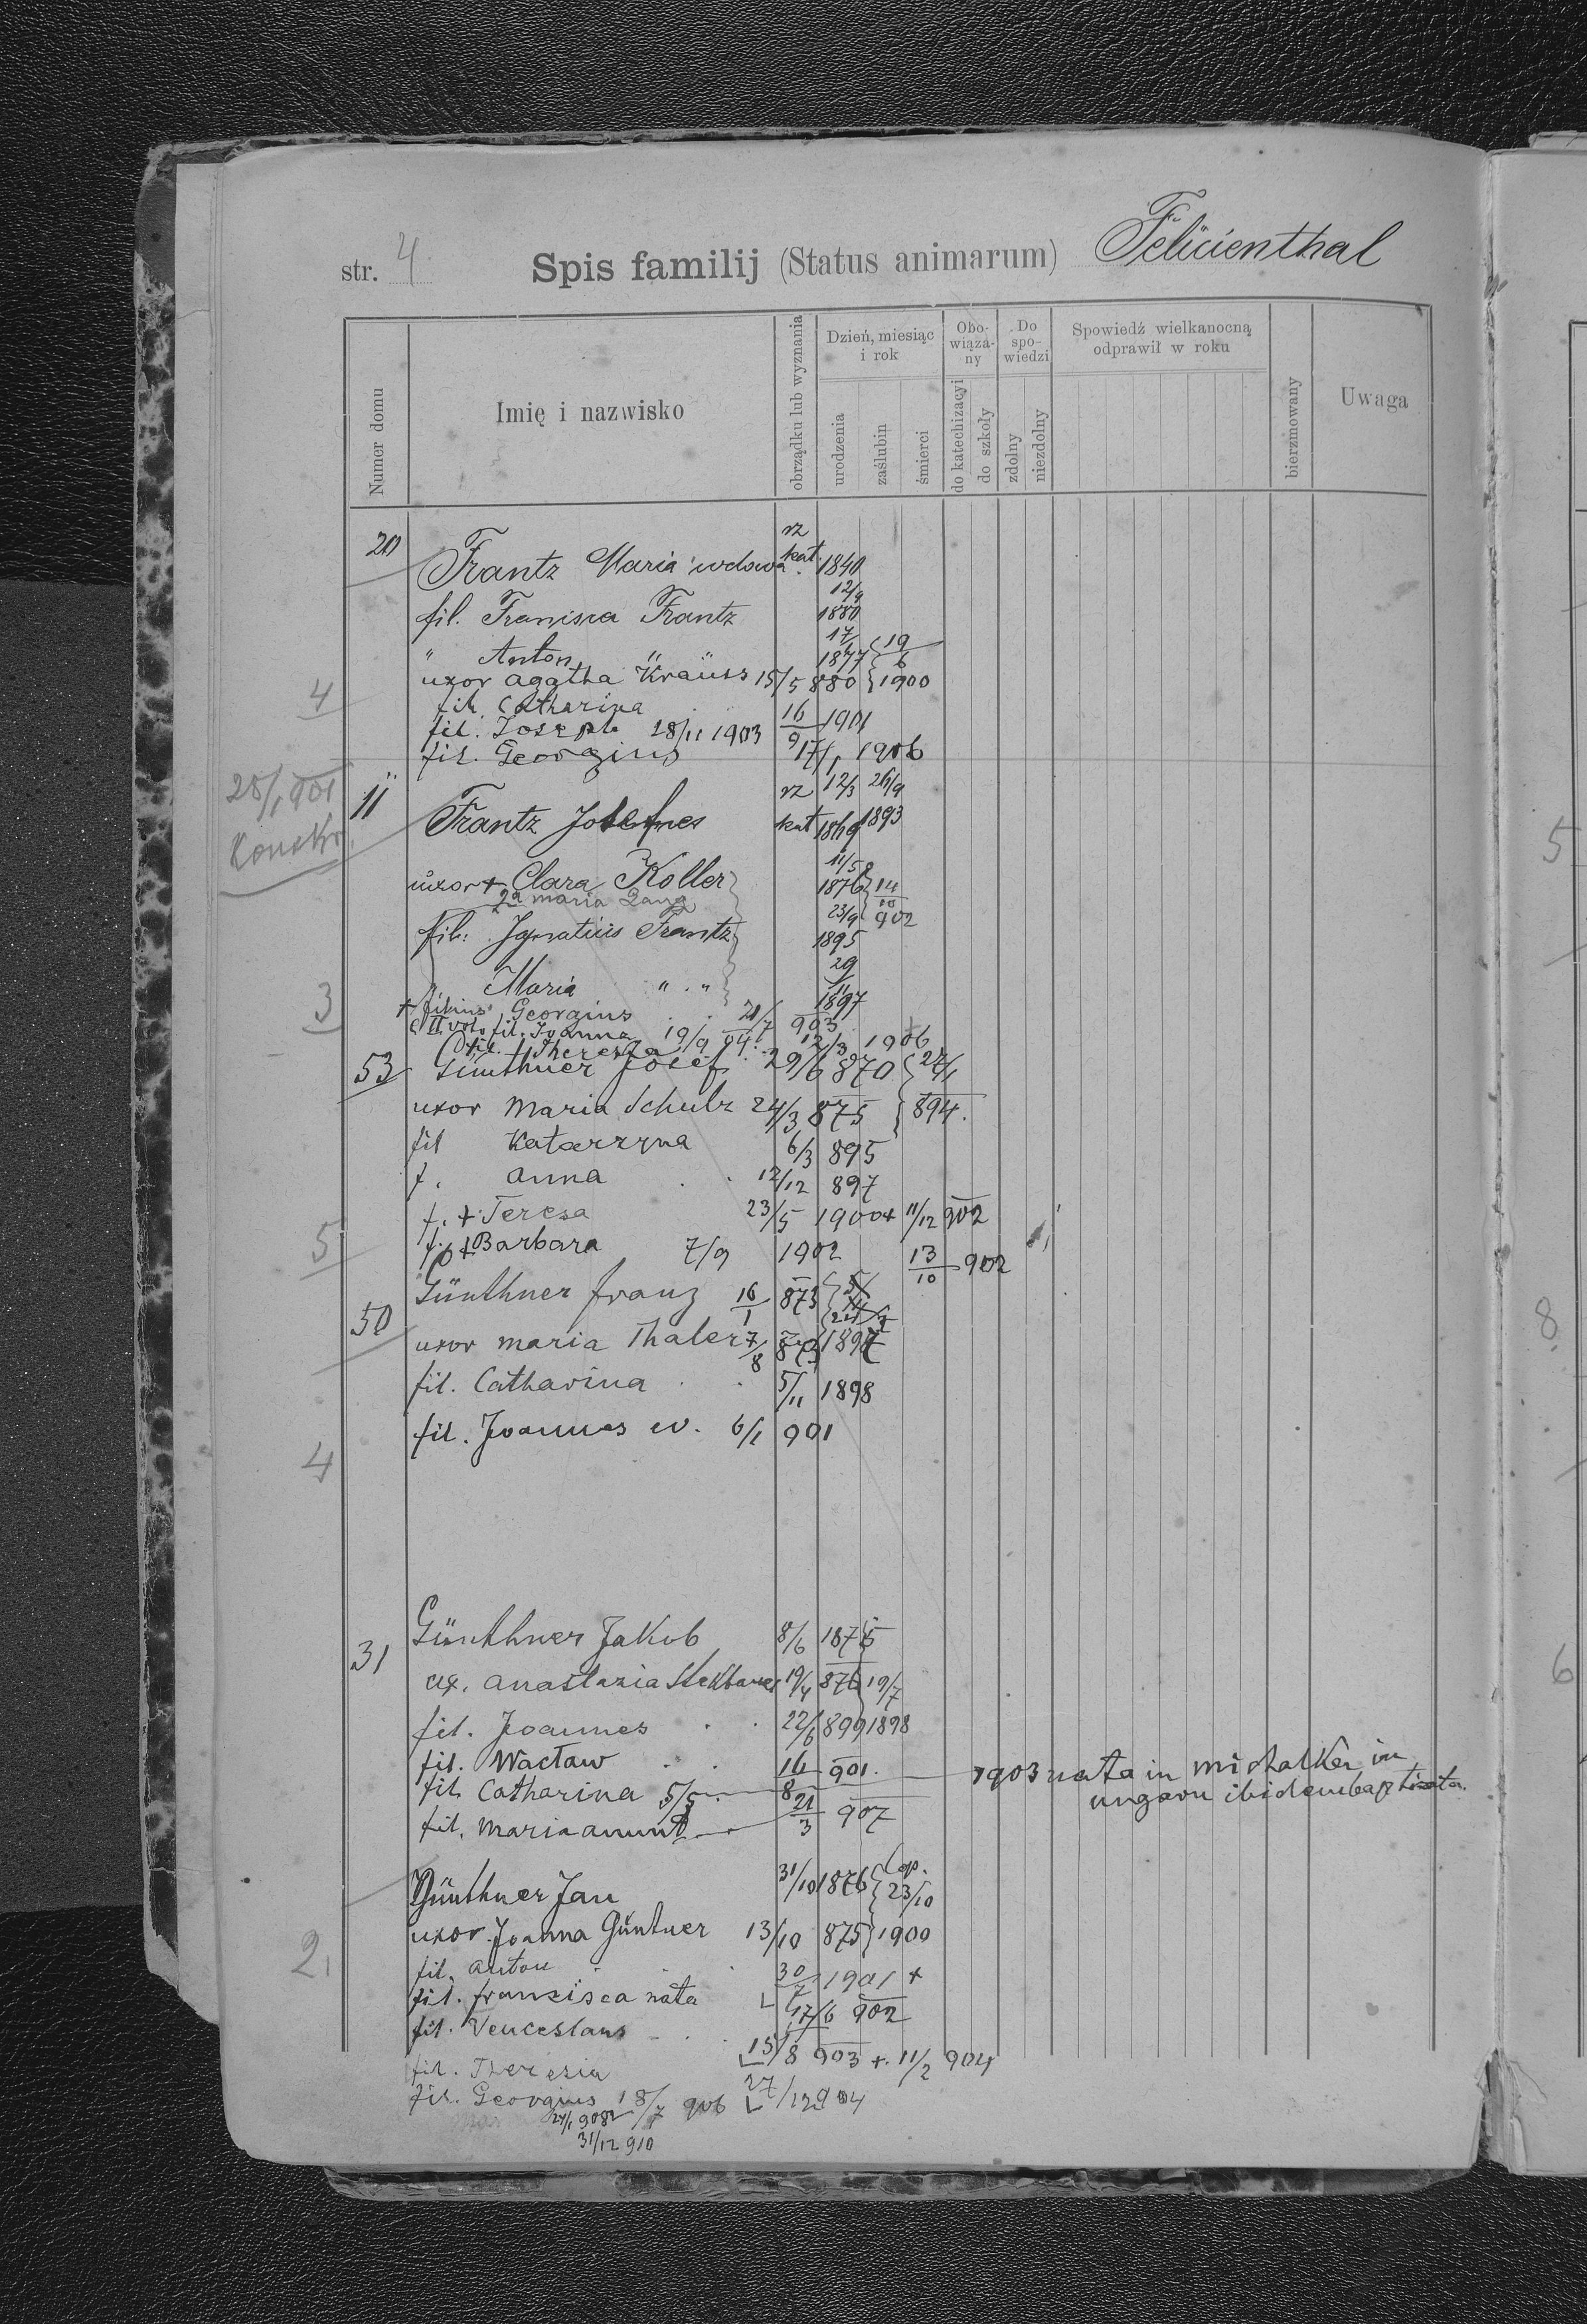 str. 4
Spis familij (Status animarum) Felicienthal
Numer domu
Imię i nazwisko
obrządku lub wyznania
Dzień, miesiąc i rok
urodzenia
zaślubin
śmierci
Obo-wiąza-ny
do katechizacyi
do szkoły
Do spo-wiedzi
zdolny
niezdolny
Spowiedź wielkanocną odprawił w roku
bierzmowany
Uwaga
20 Frantz Maria wdowa rz kat. 1840
fil. Francisca Frantz 12/9 1880
" Anton " 17/6 1877 19/6
4 uxor Agatha Kraüss 15/5 880 1900
fil. Catharina 16/9 1901
fil. Joseph 28/11 1903
fil. Georgius 17/1 1906
28/1 901
11 Frantz Josefus rz kat 12/3 1869 26/9 1893
uxor + Clara Koller 11/5 1876 14/10 902
2a Maria
fil. Ignatius Frantz 23/9 1895
" Maria " " 29/11 1897
3 + filius Georgius 21/7 903
c II voto fil. Joanna 19/9 04
fil. + Theresia 12/3 1906
53 Günthner Josef 29/6 870 22/1
uxor Maria Schulz 24/3 875 894.
fil Katarzyna 6/3 895
f. Anna 12/12 897
f. + Teresa 23/5 1900 + 11/12 902
5 f. + Barbara 7/9 1902 13/10 902
50 Günthner Franz 16/1 873
uxor Maria Thaler 7/8 873 1897
fil. Catharina 5/11 1898
fil. Joannes ev. 6/1 901
4
31 Günthner Jakob 8/6 1875
ux. Anastazia 19/4 876 19/7
fil. Joannes 22/6 899 1898
fil. Wacław 16/8 901.
fil. Catharina 5/5 1903 nata in michalken in
ungarn ibidem baptisata.
fil. Maria anunt 21/3 907
Günthner Jan 31/10 1876 cop. 23/10
uxor Joanna Güntner 13/10 875 1900
2. fil. Anton 30/7 1901 +
fil. Francisca nata 17/6 902
fil. Venceslaus 15/8 903 + 11/2 904
fil. Theresia 27/12 904
fil. Georgius 18/7 906
24/1 908
31/12 910
5
8
6